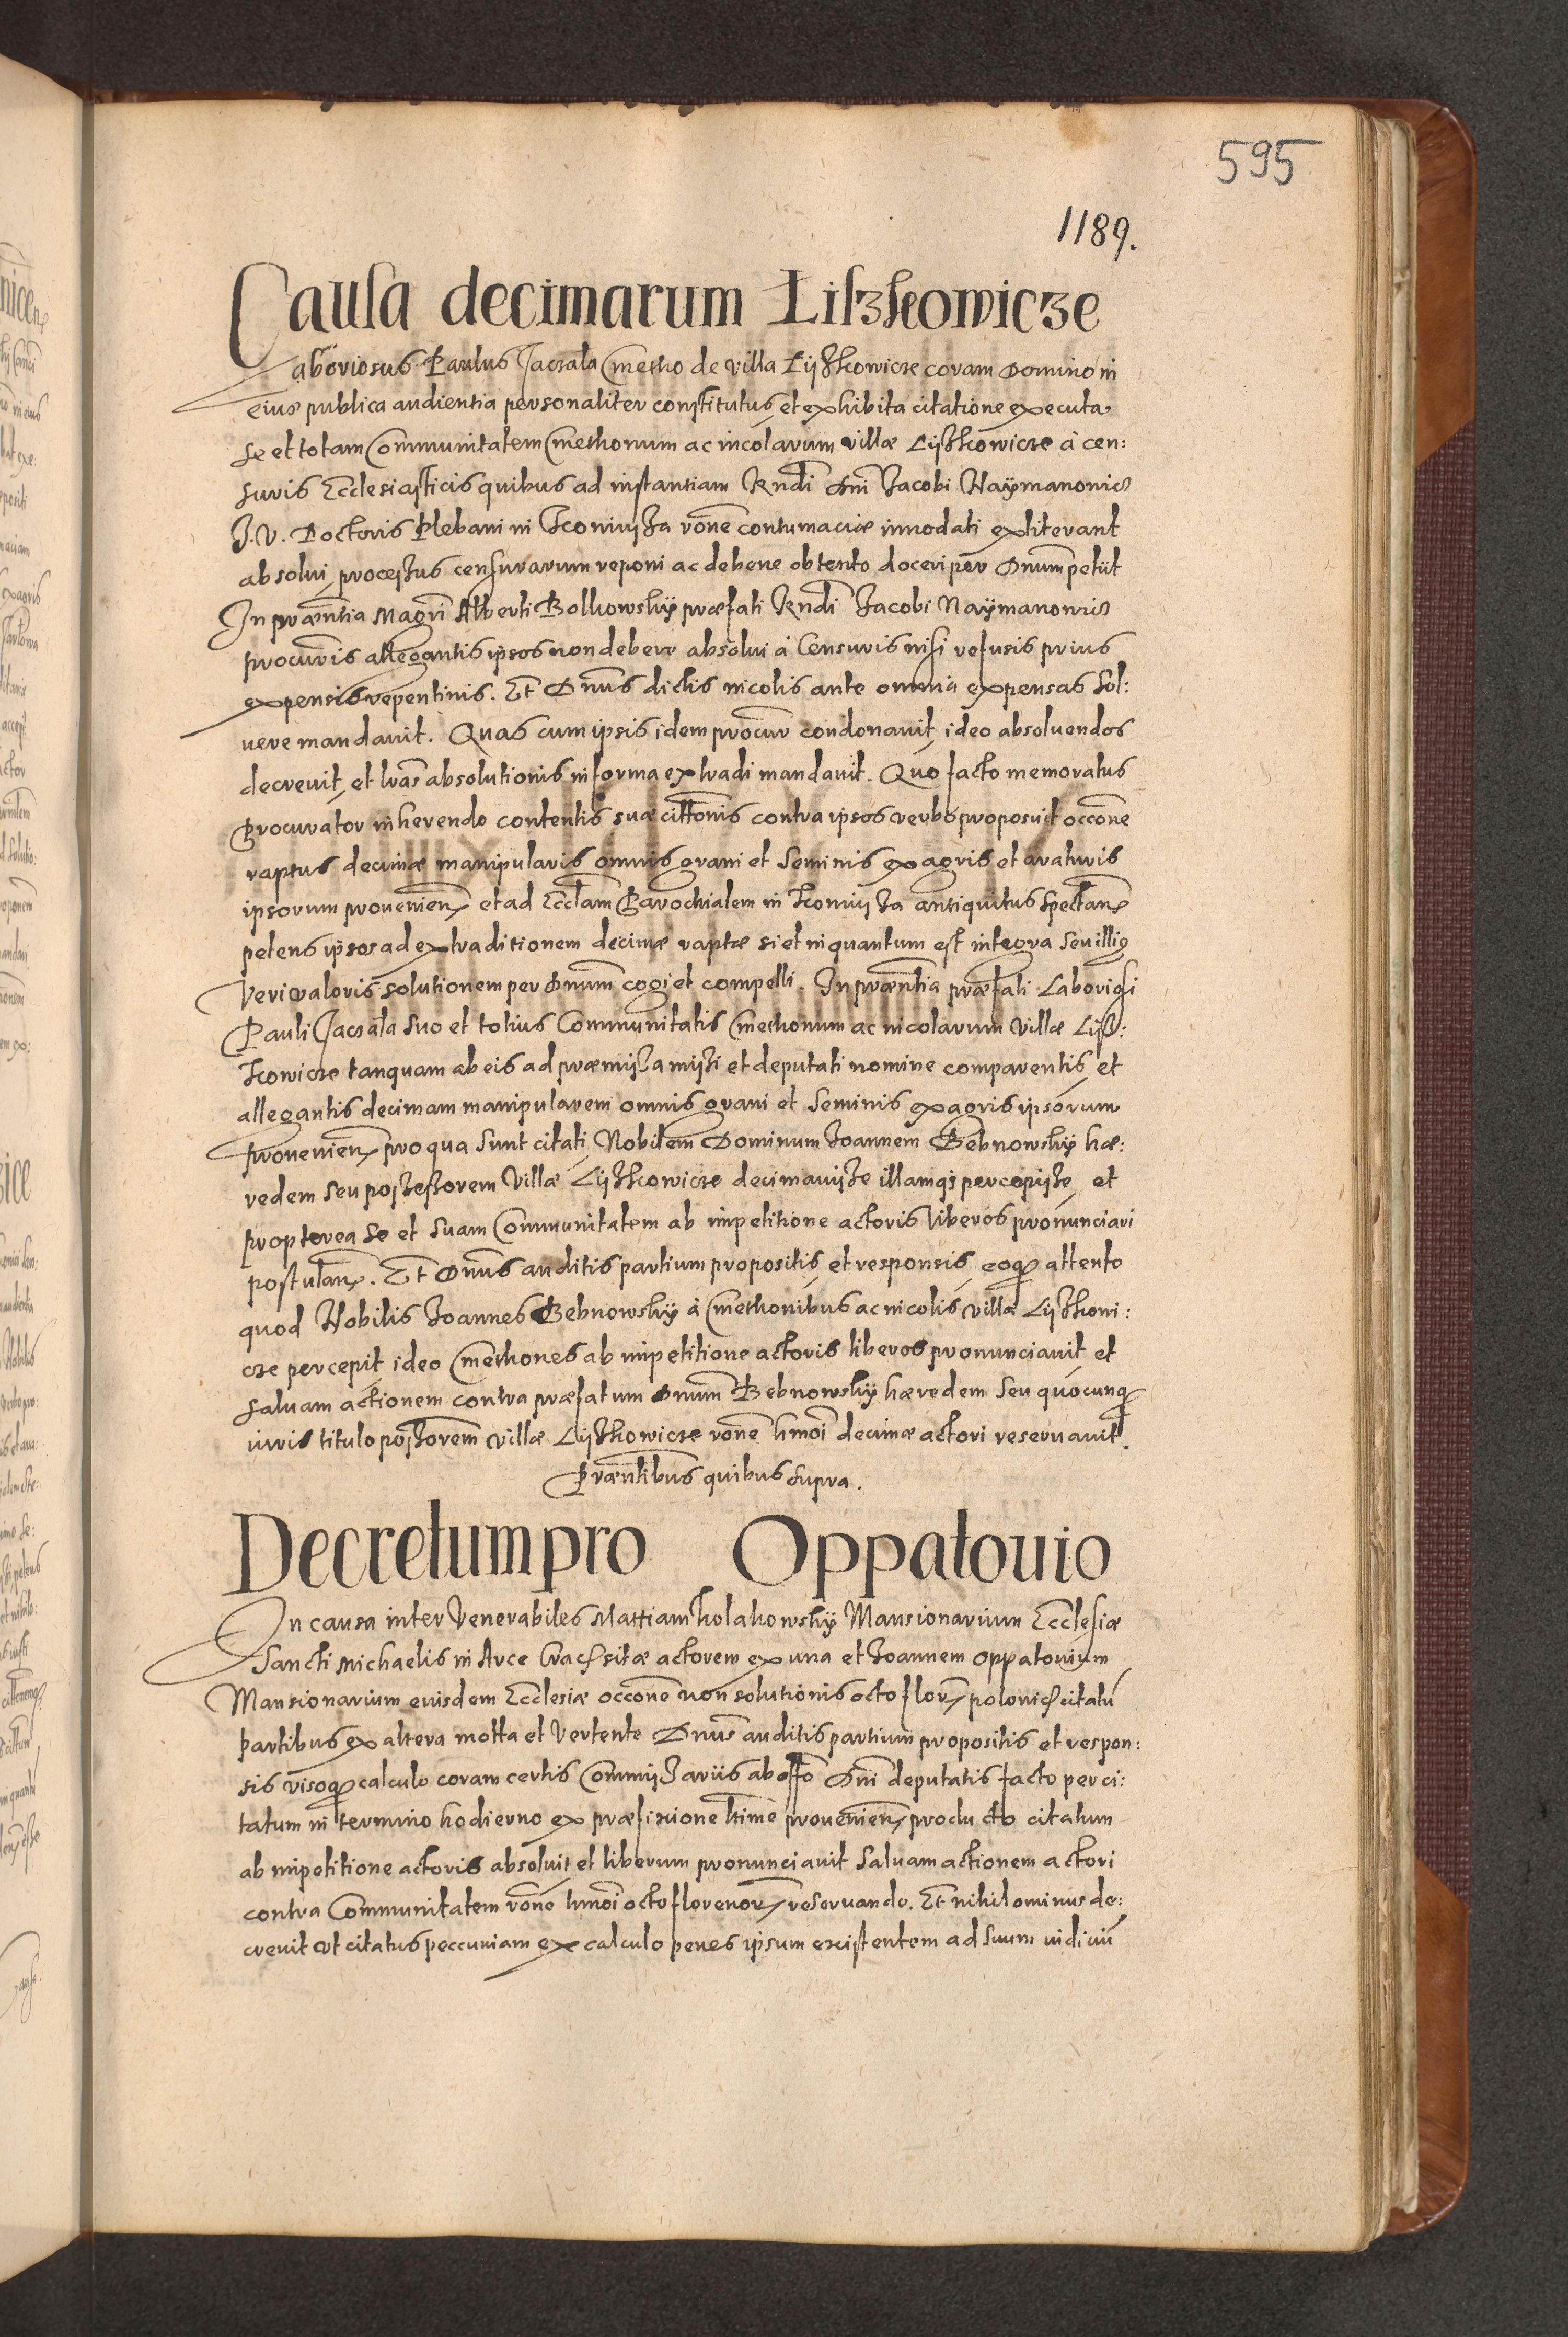 595
1189.
Causa decimarum Liszkowicze
Laboriosus Paulus Jaczala Cmetho de villa Lisskowicze coram Domino in
eius publica audientia personaliter constitutus, et exhibita citatione executa,
se et totam Communitatem Cmethonum ac incolarum villæ Lisskowicze à cen:
suris Ecclesiasticis quibus ad instantiam Rndi Dni Jacobi Naÿmanowicz
J. V. Doctoris Plebani in rone contumaciæ innodati extiterant
absolui, processus censurarum reponi ac debene obtento doceri per Dnum petiit
In præntia Magri Alberti Bolkowskÿ præfati Rndi Jacobi Naÿmanowicz
procuris allegantis ipsos non debere absolui à Censuris nisi refusis prius
expensis repentinis. Et Dnus dictis incolis ante omnia expensas sol:
uere mandauit. Quas cum ipsis idem procur condonauit, ideo absoluendos
decreuit, et lras absolutionis in forma extradi mandauit. Quo facto memoratus
Procurator inherendo contentis suæ cittonis contra ipsos verbo proposuit occone
raptus decimæ manipularis omnis grani et seminis ex agris et araturis
ipsorum prouenien et ad Ecclam Parochialem in antiquitus spectan
petens ipsos ad extraditionem decimæ raptæ si et in quantum est integra seu illig
veri valoris solutionem per Dnum cogi et compelli. In præntia præfati Laboriosi
Pauli Jaczala suo et totius Communitatis Cmethonum ac incolarum villæ Liss:
kowicze tanquam ab eis ad præmissa missi et deputati nomine comparentis, et
allegantis decimam manipularem omnis grani et seminis ex agris ipsorum
prouenien, pro qua sunt citati, Nobilem Dominum Joannem Bebnowskÿ hæ:
redem seu possessorem villæ Lisskowicze decimauisse illamq percepisse, et
propterea se et suam Communitatem ab impetitione actoris liberos pronunciari
postulan. Et Dnus auditis partium propositis, et responsis, eoq attento
quod Nobilis Joannes Bebnowskÿ à Cmethonibus ac incolis villæ Lisskowi:
cze percepit, ideo Cmethones ab impetitione actoris liberos pronunciauit et
saluam actionem contra præfatum Dnum Bebnowskÿ hæredem seu quocunq
iuris titulo possorem villæ Lisskowicze rone hmoi decimæ actori reseruauit.
Præntibus quibus supra.
Decretum pro Oppatouio
In causa inter Venerabiles Mattiam Kolakowskÿ Mansionarium Ecclesiæ
Sancti Michaelis in Arce Crac sitæ actorem ex una et Joannem Oppatouium
Mansionarium euisdem Ecclesiæ occone non solutionis octo flor polonic citatu
partibus ex altera motta et vertente Dnus auditis partium propositis et respon:
sis visoq calculo coram certis Commissariis ab offo Dni deputatis facto per ci:
tatum in termino hodierno ex præfixione ltime prouenien producto citatum
ab impetitione actoris absoluit et liberum pronunciauit saluam actionem actori
contra Communitatem rone hmoi octo florenor reseruando. Et nihilominus de:
creuit vt citatus peccuniam ex calculo penes ipsum existentem ad suum iudiciu